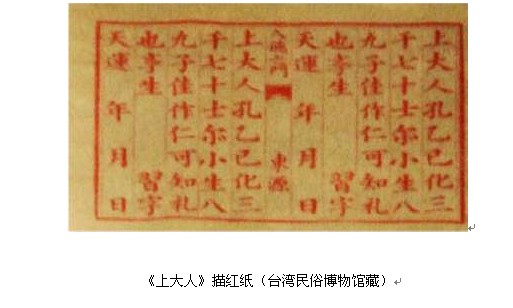 上大人孔乙己化三
千七十士尔小生八
九子佳作仁可知礼
也斈生 習字
天運 年 月 日
東源
上大人孔乙己化三
千七十士尔小生八
九子佳作仁可知礼
也斈生 習字
天運 年 月 日
《上大人》描红纸（台湾民俗博物馆藏）